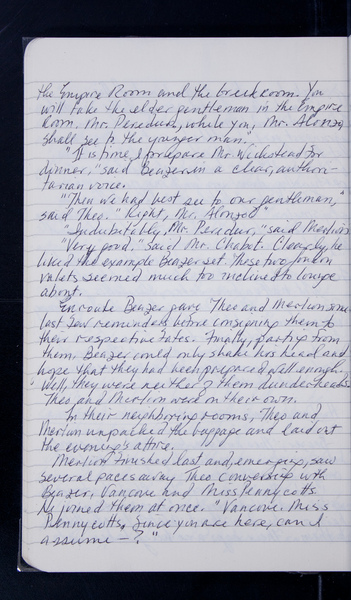 the Empire Room and the break room. You
will take the elder gentleman in the Empire
Room, Mr. Peredur, while you, Mr. Alonzo,
shall see to the younger man."
"It is time I prepare Mr. for
dinner," said Benzer in a clear, authori-
tarian voice.
"Then we had best see to our gentleman,"
said Theo. "Right, Mr. Alonzo?"
"Indubitably, Mr. Peredur," said Merlion.
"Very good," said Mr. Chabot. Clearly, he
liked the example Benzer set. These two
valets seemed much too inclined to lounge
about.
Enroute Benzer gave Theo and Merlion some
last few reminders before consigning them to
their respective fates. Finally, parting from
them, Benzer could only shake his head and
hope that they had been prepared well enough.
Well, they were neither of them dunderheads.
Theo and Merlion were on their own.
In their neighboring rooms, Theo and
Merlion unpacked the baggage and laid out
the evening's attire.
Merlion finished last and, emerging, saw
several paces away Theo conversing with
Benzer, Vancove and Miss Pennycotts.
He joined them at once. "Vancove. Miss
Pennycotts. Since you are here, can I
assume — ?"